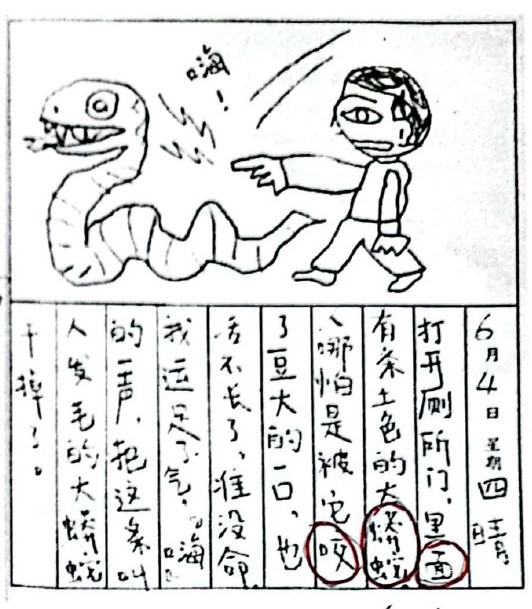 嗨！
6月4日 星期四 晴
打开厕所门，里面
有条土色的大蟒蛇
，哪怕是被它咬
了豆大的一口，也
活不长了，准没命。
我运足了气，“嗨”
的一声，把这条叫
人发毛的大蟒蛇
干掉了。